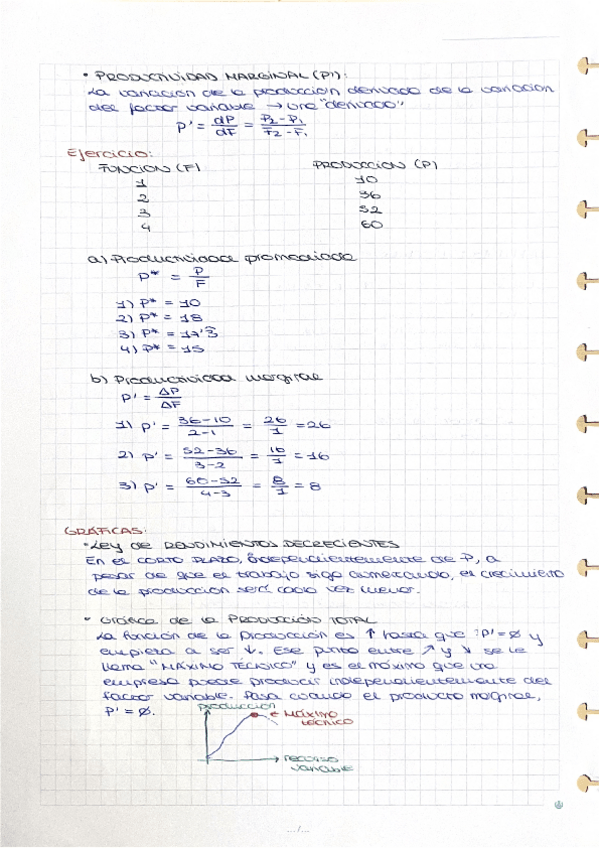 • PRODUCTIVIDAD MARGINAL (P'):
La variación de la producción derivada de la variación
del factor variable → una "derivada"
P' = dP/dF = P2-P1/F2-F1
Ejercicio:
FUNCIÓN (F) PRODUCCIÓN (P)
1 10
2 36
3 52
4 60
a) Productividad promediada
P* = P/F
1) P* = 10
2) P* = 18
3) P* = 17'3
4) P* = 15
b) Productividad marginal
P' = ΔP/ΔF
1) P' = 36-10/2-1 = 26/1 = 26
2) P' = 52-36/3-2 = 16/1 = 16
3) P' = 60-52/4-3 = 8/1 = 8
GRÁFICAS:
• Ley de RENDIMIENTOS DECRECIENTES
En el CORTO PLAZO, independientemente de P, a
pesar de que el trabajo siga aumentando, el crecimiento
de la producción será cada vez menor.
• Gráfica de la PRODUCCIÓN TOTAL
La función de la producción es ↑ hasta que P' = ø y
empieza a ser ↓. Ese punto entre ↗ y ↘ se le
llama "MÁXIMO TÉCNICO" y es el máximo que una
empresa puede producir independientemente del
factor variable. Pasa cuando el producto marginal,
P' = ø.
producción
← MÁXIMO
TÉCNICO
recurso
variable
.../...